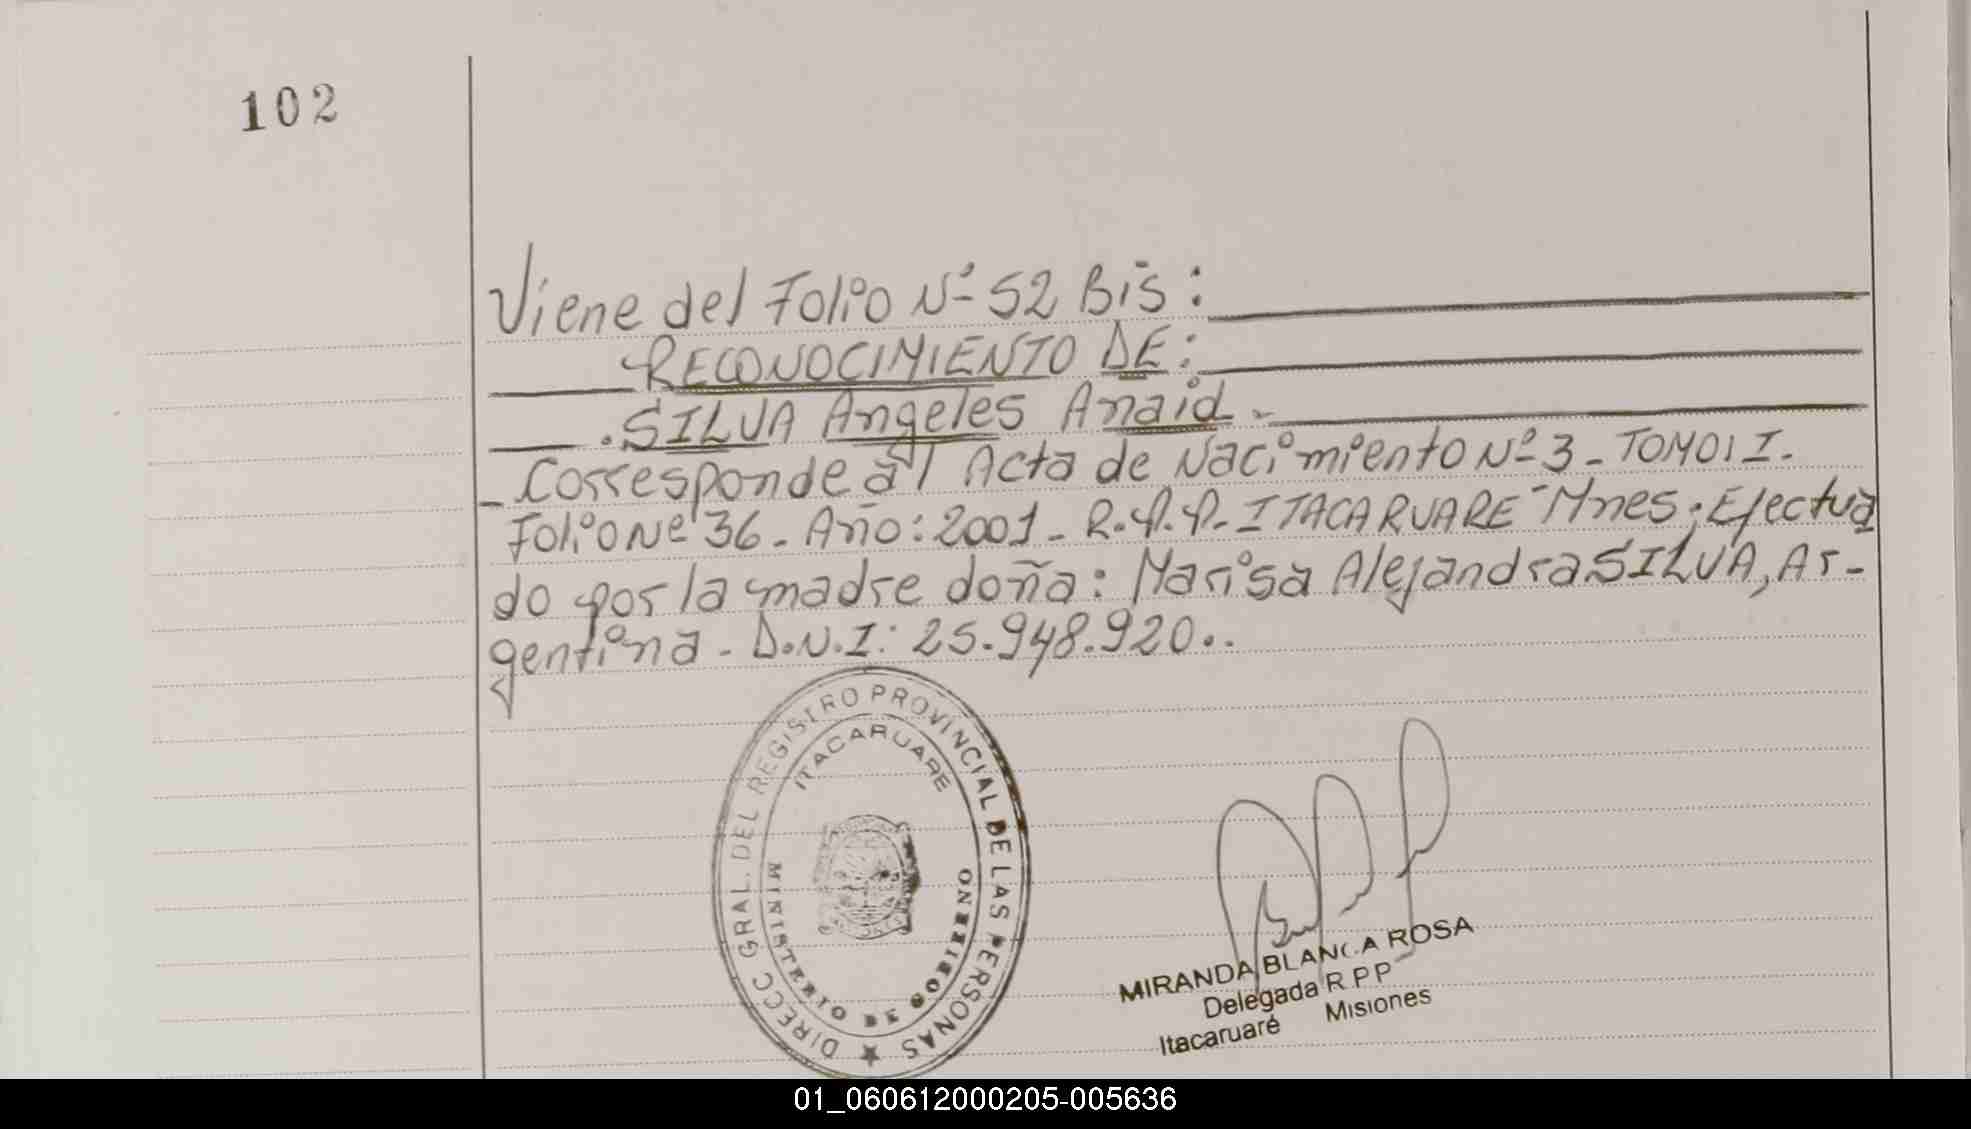 102
Viene del Folio Nº 52 Bis:
RECONOCIMIENTO DE:
.SILVA Angeles Anaid.-
- Corresponde al Acta de Nacimiento Nº 3 - TOMO: I.
Folio Nº 36 - Año: 2001 - R.P.P. ITACARUARE - Mnes; Efectua
do por la madre doña: Marisa Alejandra SILVA, Ar-
gentina - D.N.I: 25.948.920..
DIRECC GRAL. DEL REGISTRO PROVINCIAL DE LAS PERSONAS
ITACARUARE
MINISTERIO DE GOBIERNO
MIRANDA BLANCA ROSA
Delegada R P P
Itacaruaré Misiones
01_060612000205-005636